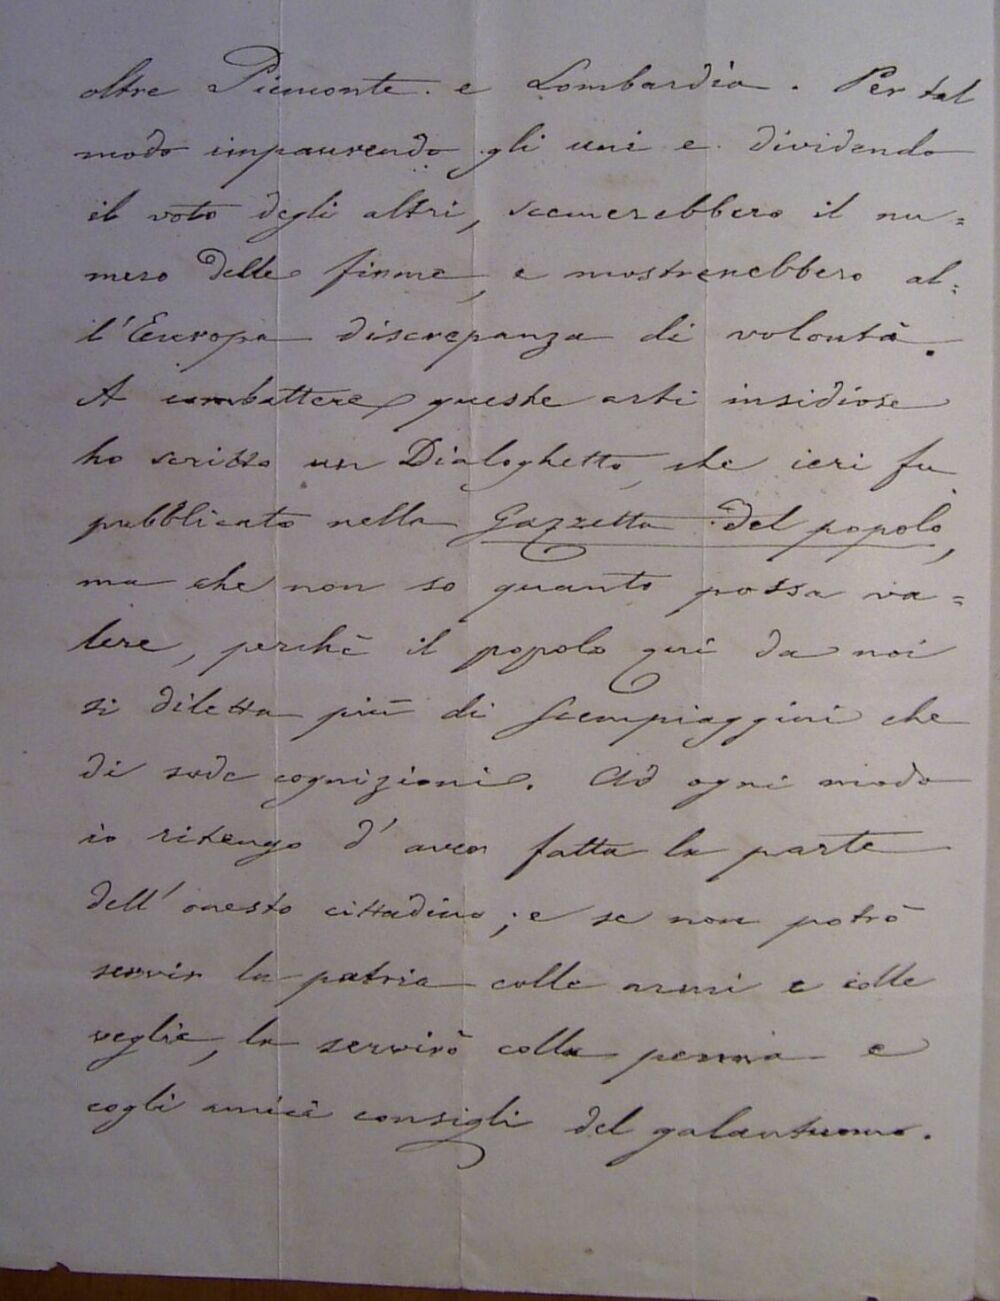 oltre Piemonte e Lombardia. Per tal
modo impaurendo gli uni e dividendo
il voto degli altri, scemerebbero il nu=
mero delle firme, e mostrerebbero al=
l'Europa discrepanza di volontà.
A combattere queste arti insidiose
ho scritto un Dialoghetto, che ieri fu
pubblicato nella Gazzetta del popolo,
ma che non so quanto possa va=
lere, perchè il popolo quì da noi
si diletta più di scempiaggini che
di sode cognizioni. Ad ogni modo
io ritengo d'aver fatta la parte
dell'onesto cittadino; e se non potrò
servir la patria colle armi e colle
veglie, la servirò colla penna e
cogli amici consigli del galantuomo.